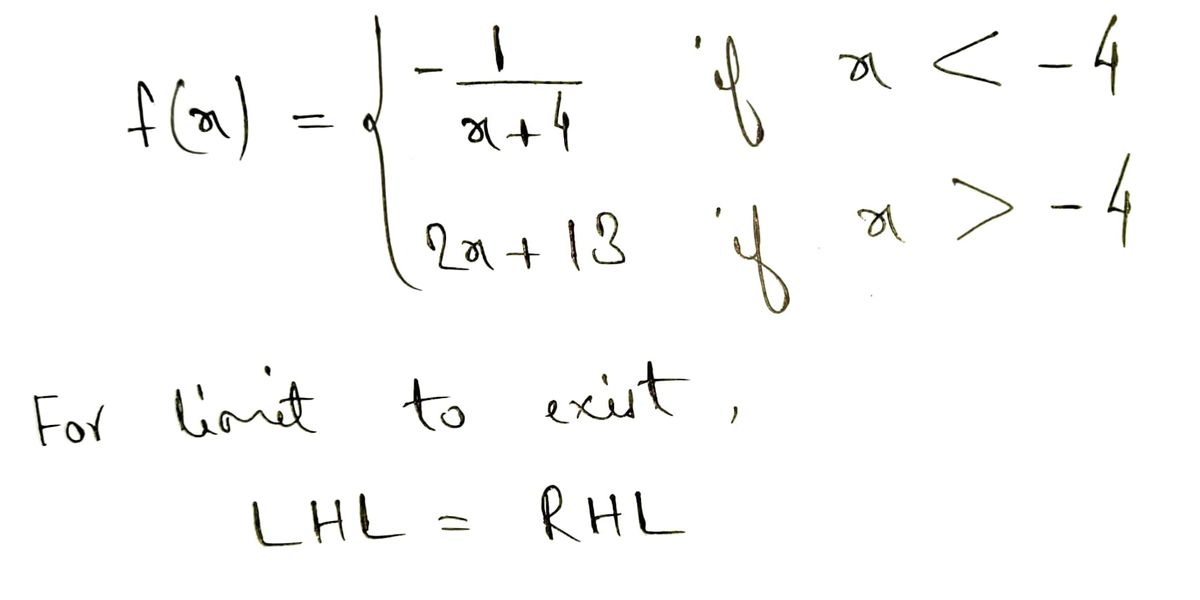 f(x) = { - 1/(x+4) if x < -4
2x + 13 if x > -4
For limit to exist,
LHL = RHL